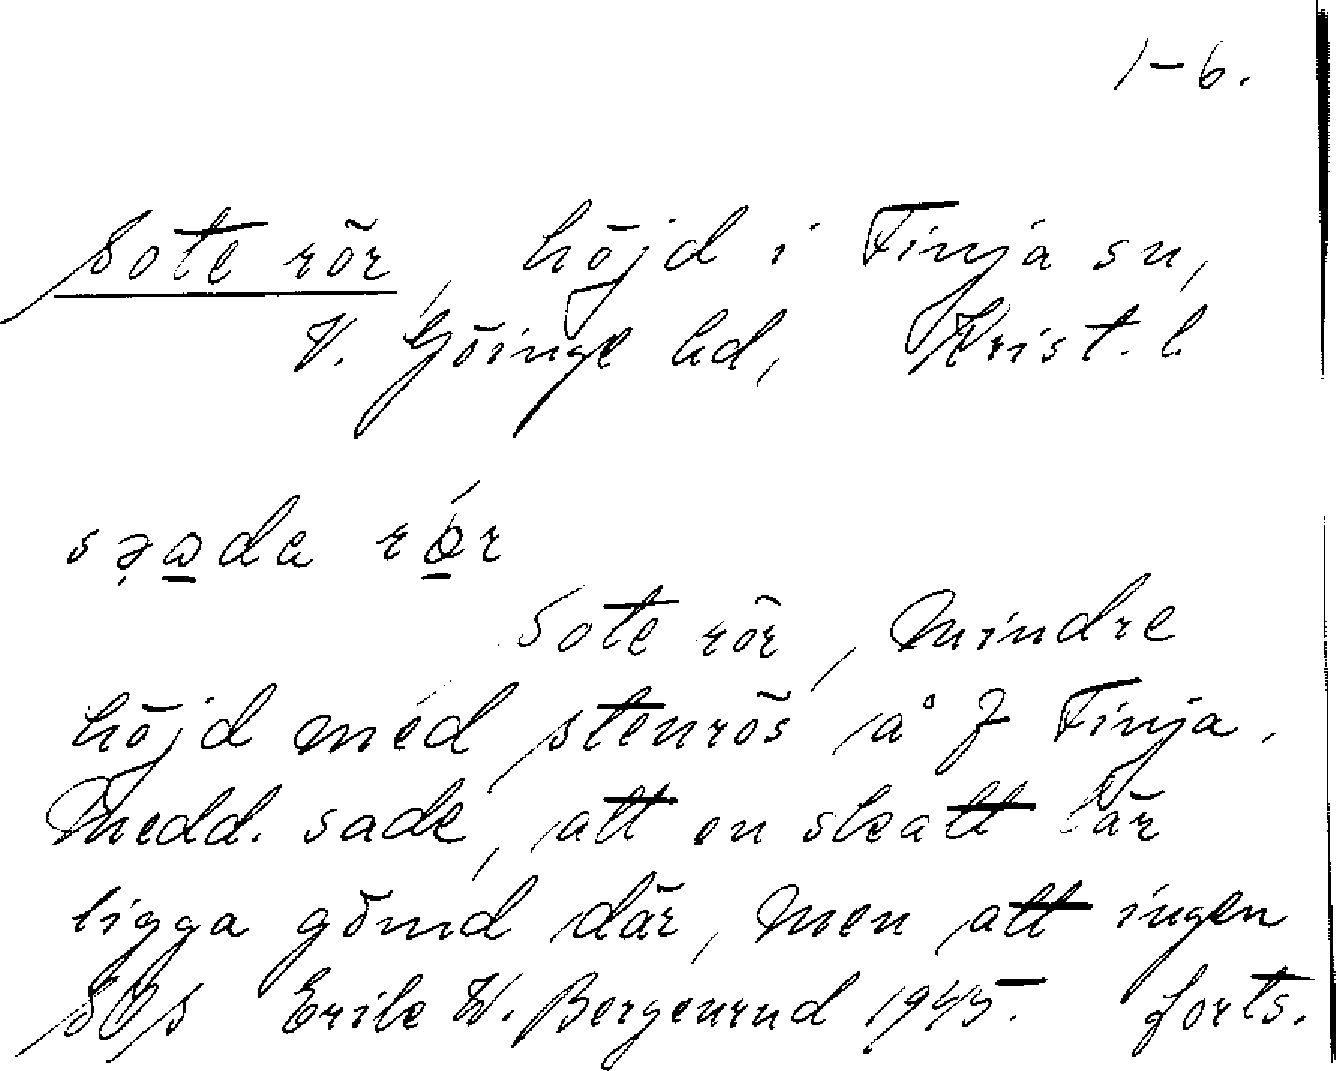 1-6.
Sote rör, höjd i Finja sn,
V. Göinge hd, Krist. l
Sote rör, mindre
höjd med stenrös å 7 Finja.
Medd. sade, att en skatt lär
ligga gömd där, men att ingen
SOS Erik W. Bergenrud 1945. forts.